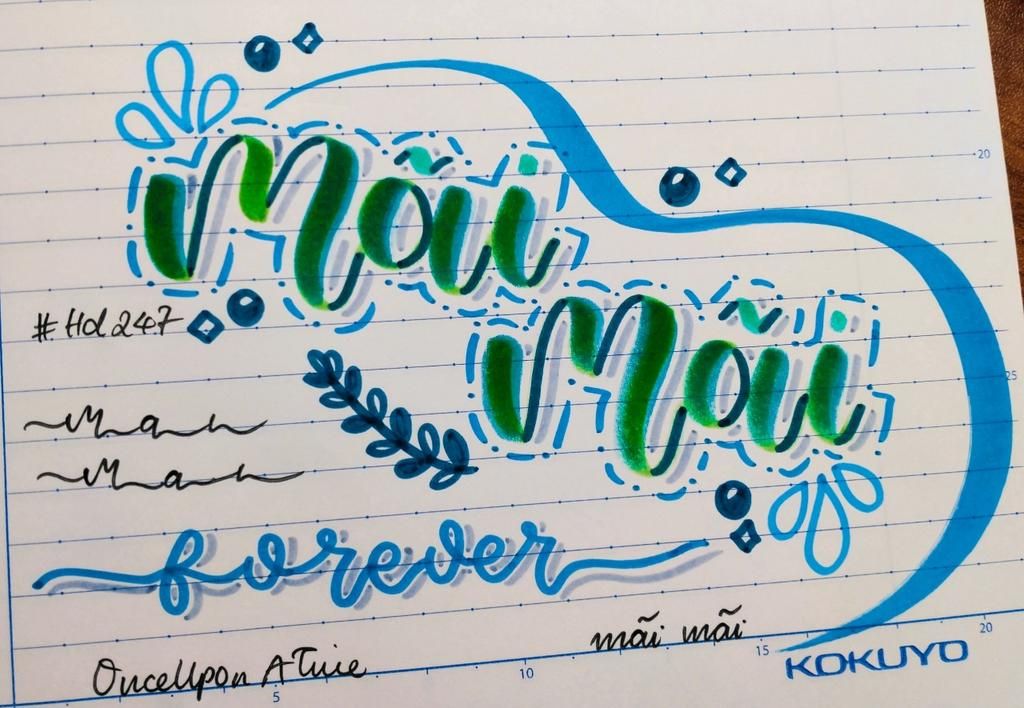 20
Mãi
Mãi
#Hd247
25
Man
Man
forever
mãi mãi
OnceUpon A Time
5
10
15
20
KOKUYO